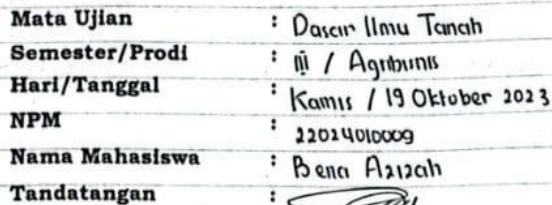 Mata Ujian : Dasar Ilmu Tanah
Semester/Prodi : III / Agribisnis
Hari/Tanggal : Kamis / 19 Oktober 2023
NPM : 22024010009
Nama Mahasiswa : Bena Azizah
Tandatangan :